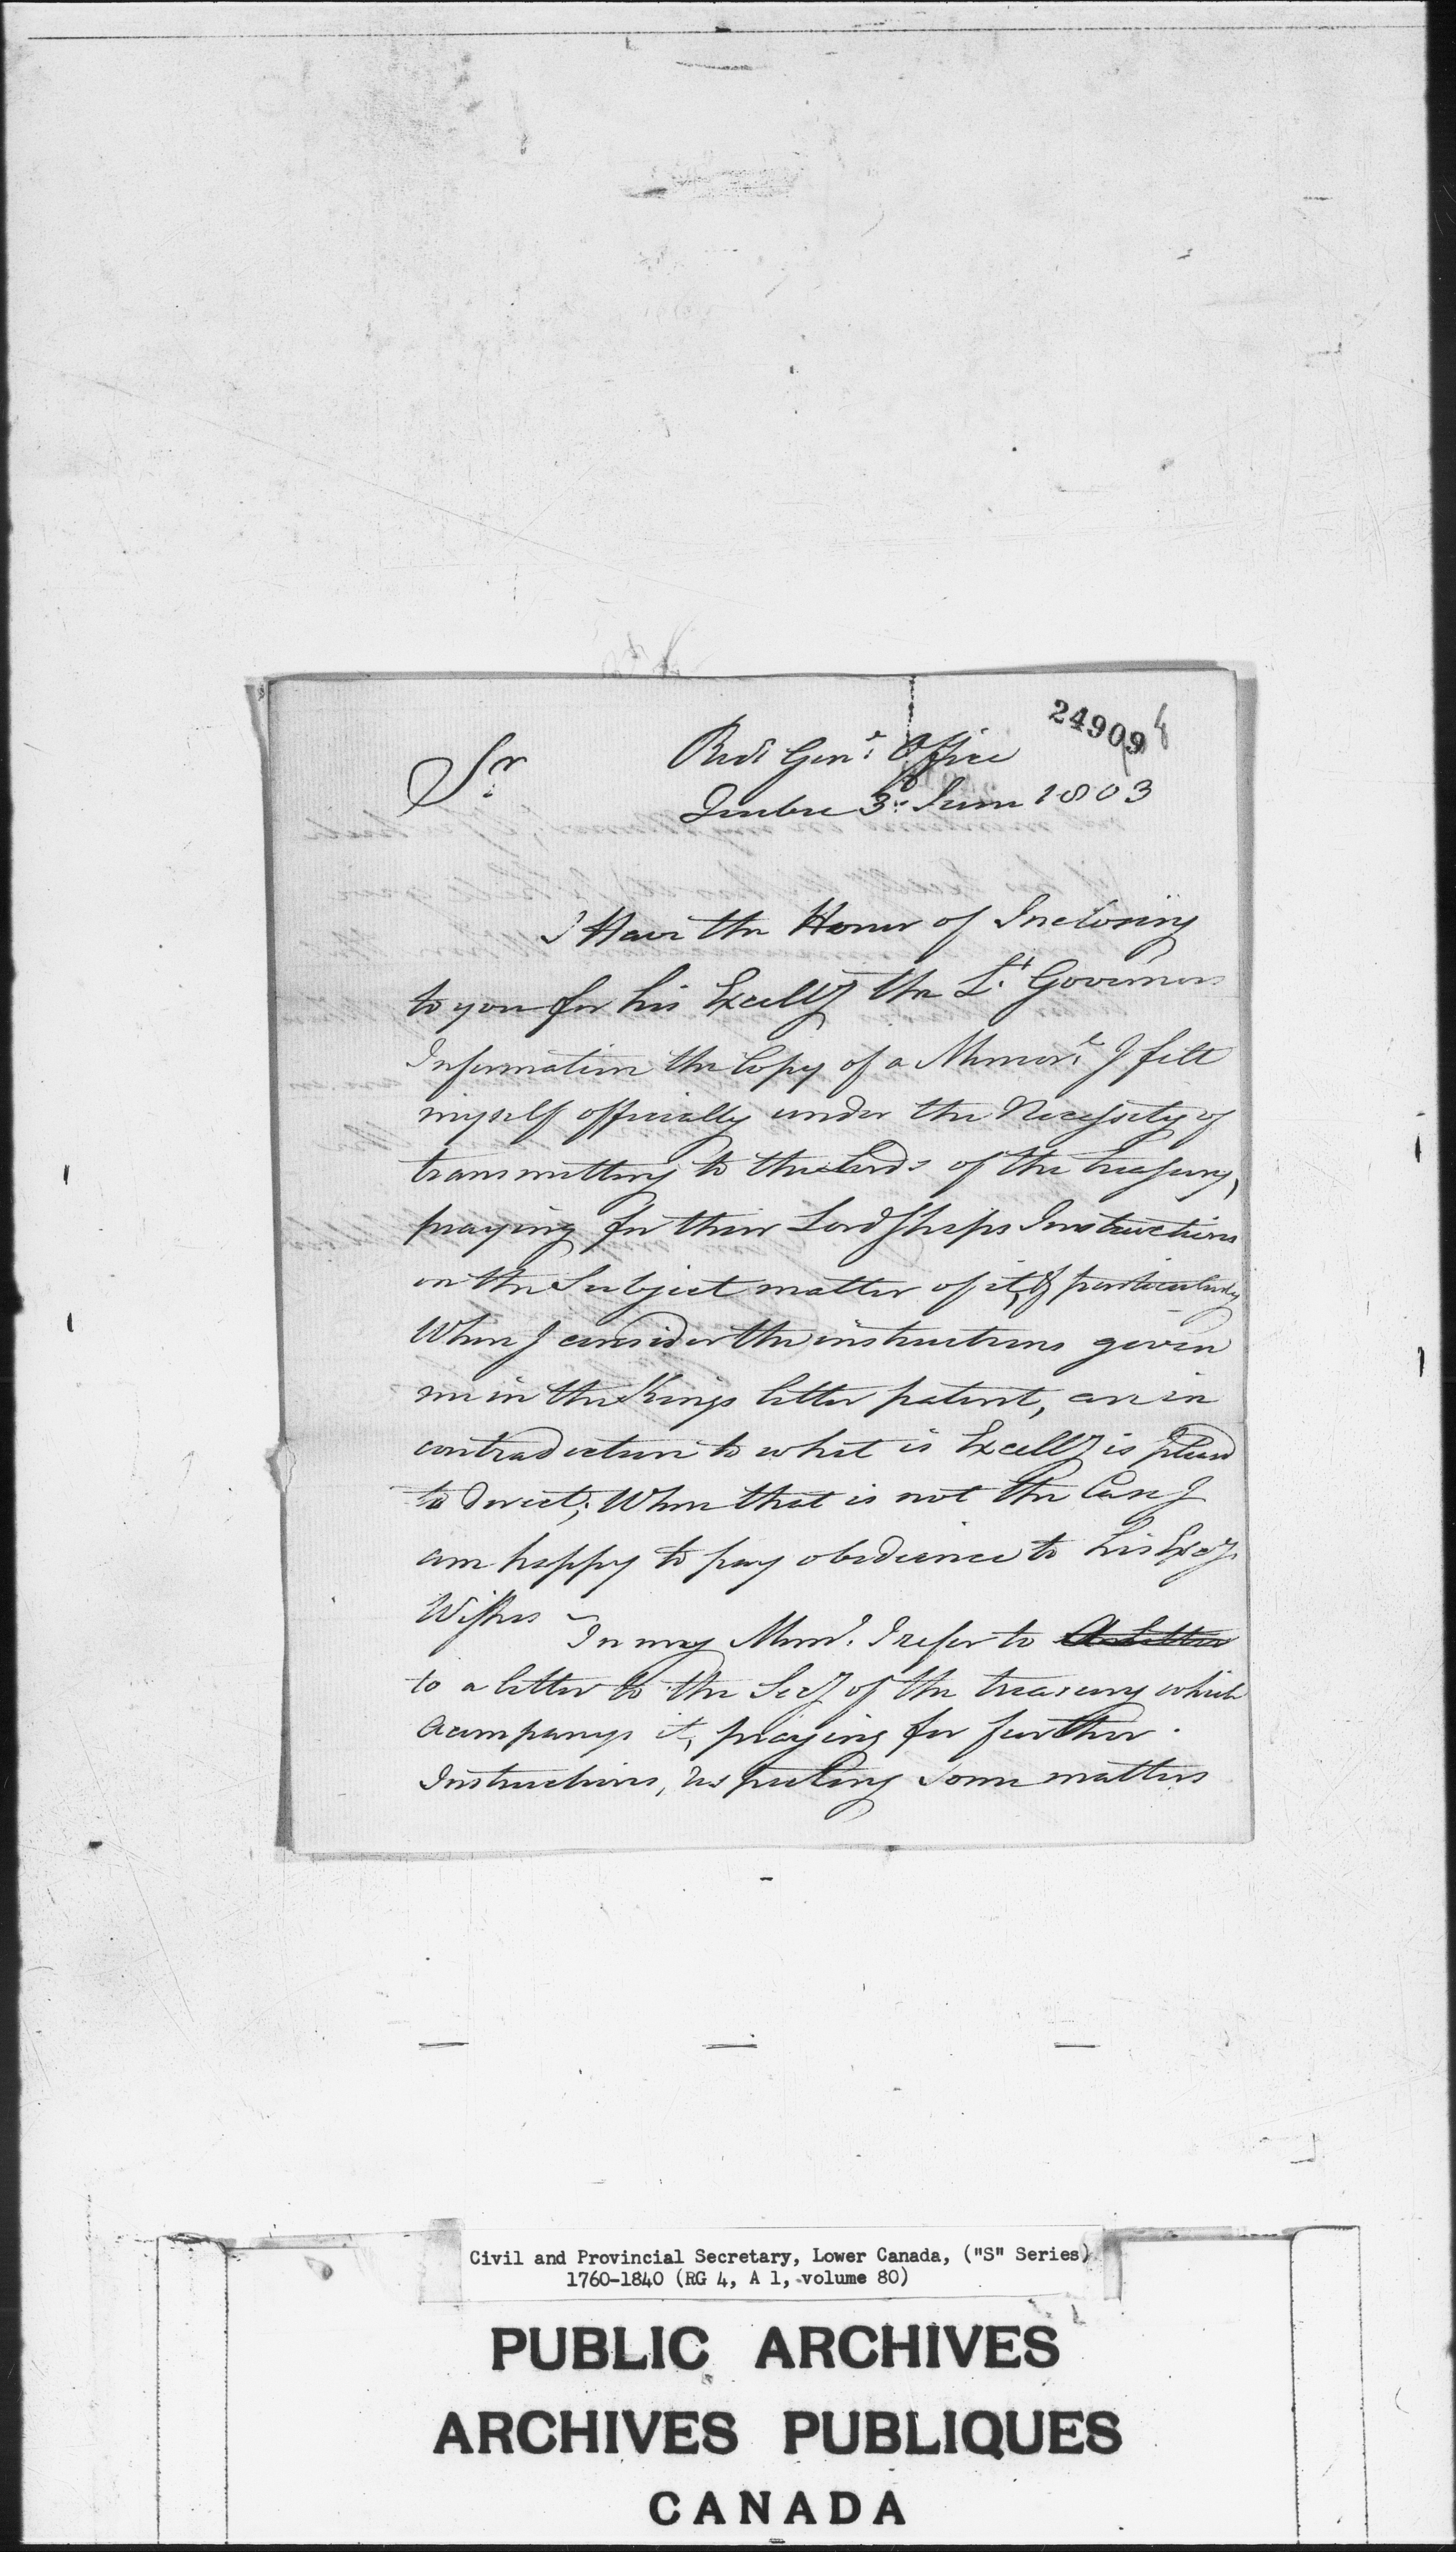 24909
Sr.
Recr Genl: Office
Quebec 3d: June 1803
I Have the Honor of Inclosing
to you for his Excelly the Lt. Governors
Information the Copy of a Memorl. I felt
myself officially under the Necessity of
transmitting to the Lords of the treasury,
praying for their Lordships Instructions
on the Subject matter of it, & particularly
When I consider the instructions given
me in the Kings letter patent, are in
contradiction to what is Excelly is pleased
to Direct; When that is not the Case I
am happy to pay obedience to his Excy.
Wishes
In my Meml. I refer to A Letter
to a letter to the Secy of the treasury which
accompanys it, praying for further
Instructions, respecting some matters
Civil and Provincial Secretary, Lower Canada, ("S" Series)
1760-1840 (RG 4, A 1, volume 80)
PUBLIC ARCHIVES
ARCHIVES PUBLIQUES
CANADA